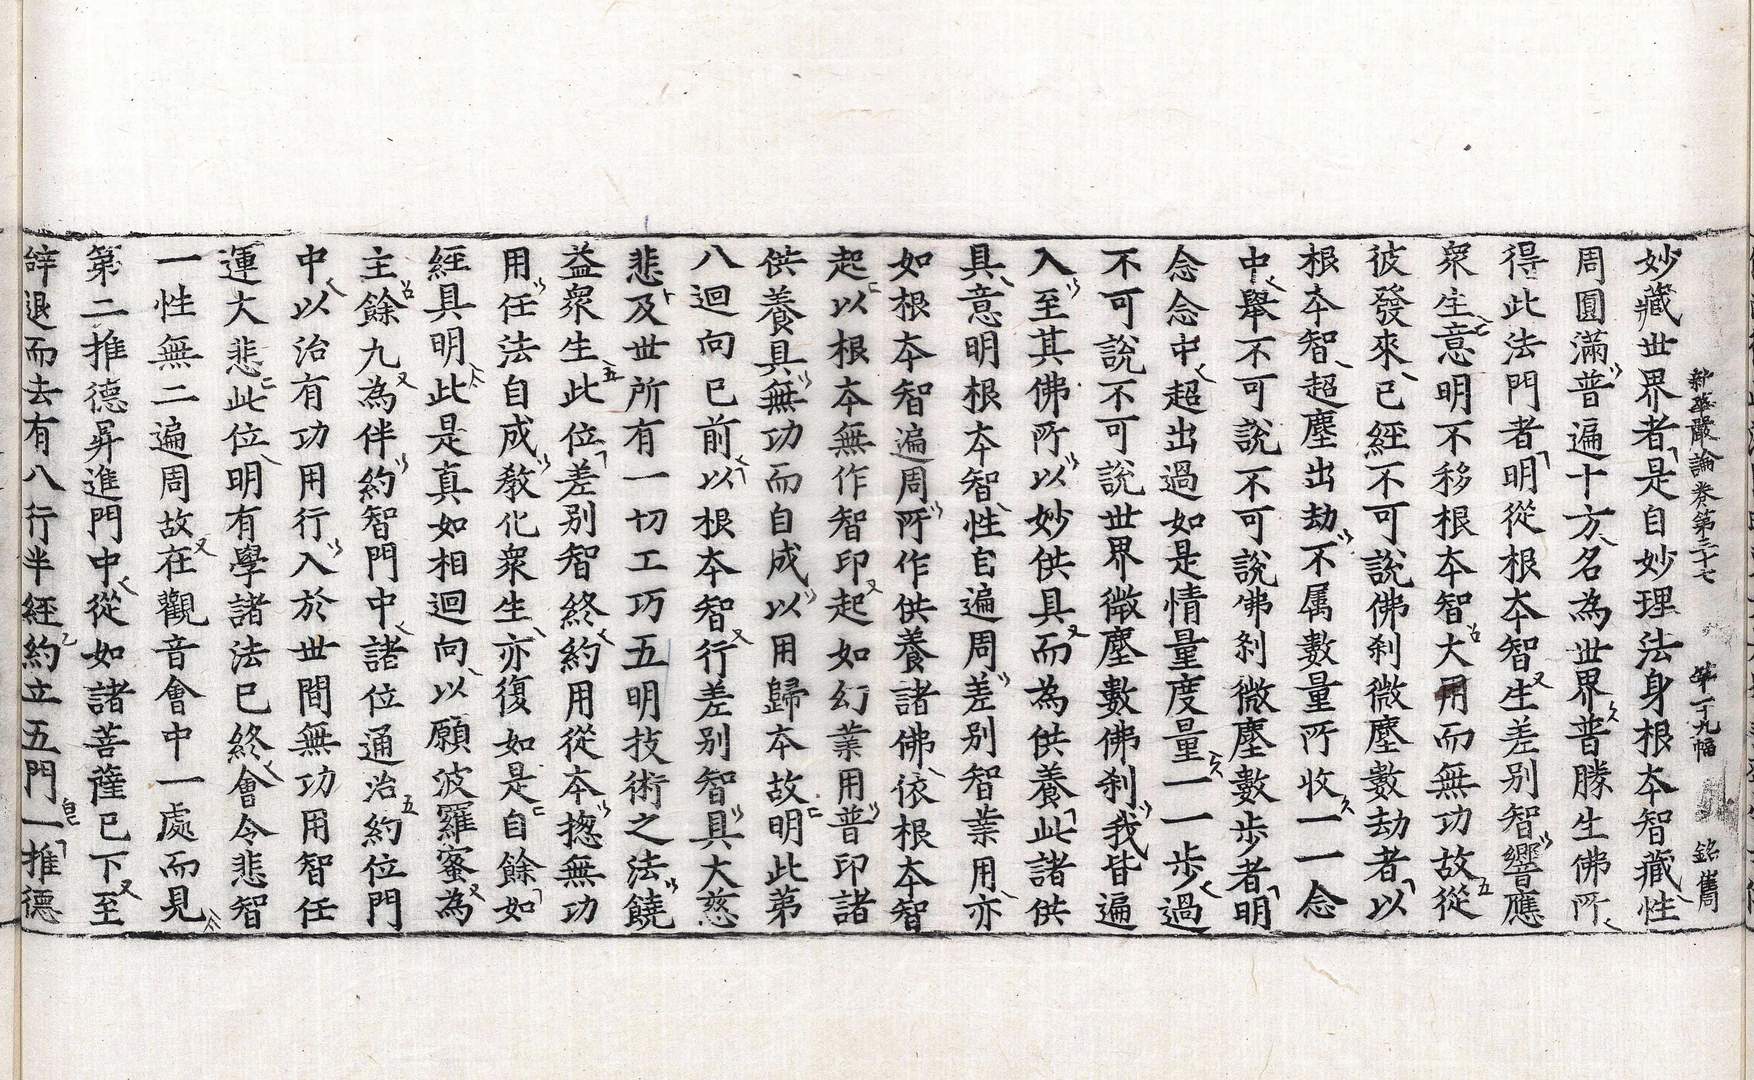 新華嚴論卷第三十七 第二十九幅 銘雋
妙藏世界者是自妙理法身根本智藏性
周圓滿普遍十方名為世界普勝生佛所
得此法門者明從根本智生差别智響應
衆生意明不移根本智大用而無功故從
彼發來已經不可說佛刹微塵數劫者以
根本智超塵出劫不属數量所收一一念
中舉不可說不可說佛刹微塵數步者明
念念中超出過如是情量度量一一步過
不可說不可說世界微塵數佛刹我皆遍
入至其佛所以妙供具而為供養此諸供
具意明根本智性自遍周差别智業用亦
如根本智遍周所作供養諸佛依根本智
起以根本無作智印起如幻業用普印諸
供養具無功而自成以用歸本故明此第
八迴向已前以根本智行差别智具大慈
悲及世所有一切工巧五明技術之法饒
益衆生此位差别智終約用從本揔無功
用任法自成教化衆生亦復如是自餘如
經具明此是真如相迴向以願波羅蜜為
主餘九為伴約智門中諸位通治約位門
中以治有功用行入於世間無功用智任
運大悲此位明有學諸法已終會令悲智
一性無二遍周故在觀音會中一處而見
第二推德昇進門中從如諸菩薩已下至
辝退而去有八行半經約立五門一推德